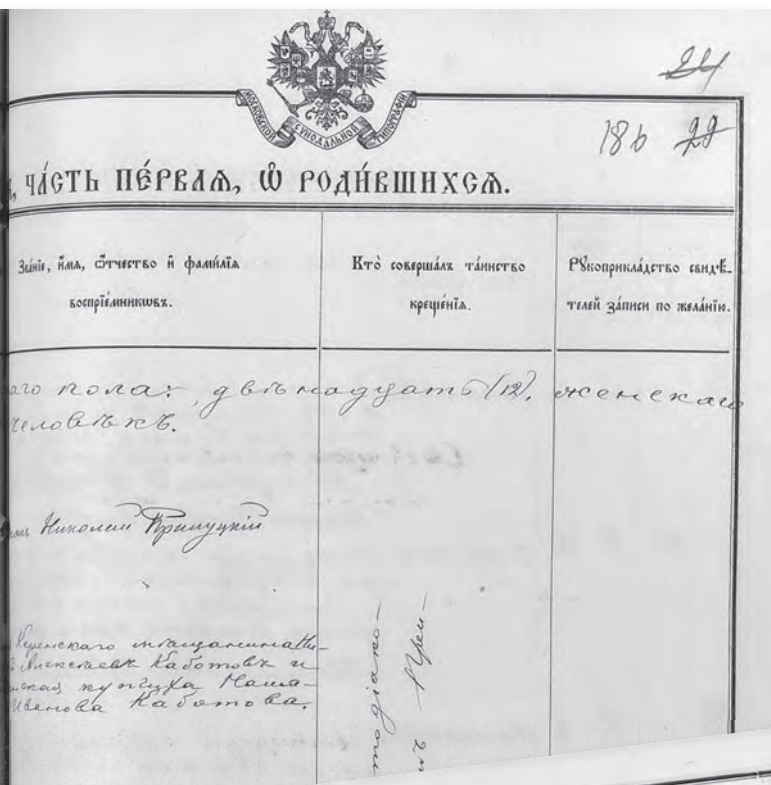 24
МОСКОВСКОЙ СѴНОДАЛЬНОЙ ТИПОГРАФІИ
186 22
ЧА́СТЬ ПЕ́РВАѦ, Ѡ҆ РОДИ́ВШИХСѦ.
Зва́нїе, и҆́мѧ, ѻ҆́тчество и҆ фами́лїѧ
воспрїе́мникѡвъ.
Кто̀ соверша́лъ та́инство
креще́нїѧ.
Рꙋкоприкла́дство свидѣ́-
телей за́писи по жела́нїю.
пола: двѣнадцать (12), женскаго
человѣкъ.
Николай Прилуцкій
Керенскаго мѣщанина
Алексѣевъ Каботовъ и
купчиха
Иванова Каботова.